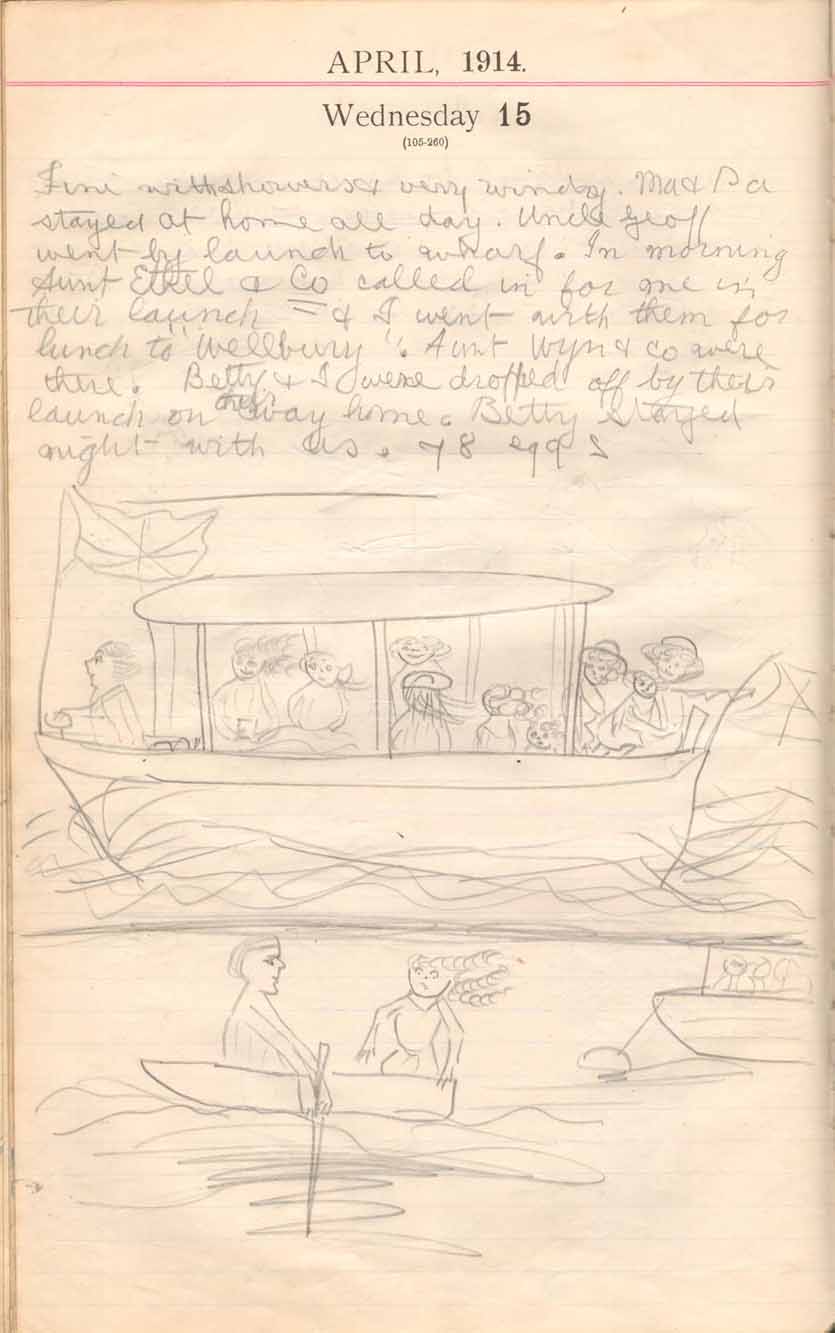 APRIL, 1914.
Wednesday 15
(105-260)
Fine with showers & very windy. Ma & Pa
stayed at home all day. Uncle Geoff
went by launch to wharf. In morning
Aunt Ethel & Co called in for me in
their launch = & I went with them for
lunch to "Wellbury". Aunt Wyn & co were
there. Betty & I were dropped off by their
launch on their way home. Betty stayed
night with us. 78 eggs